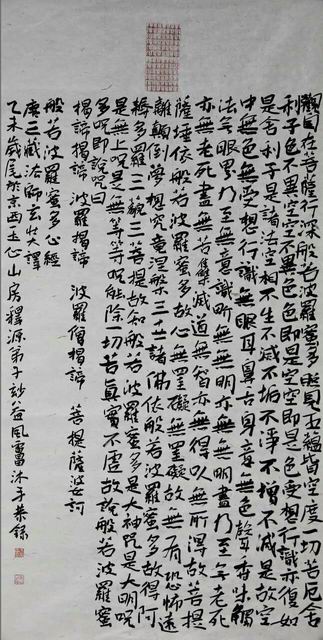 觀自在菩薩行深般若波羅蜜多時照見五蘊皆空度一切苦厄舍
利子色不異空空不異色色即是空空即是色受想行識亦復如
是舍利子是諸法空相不生不滅不垢不淨不增不減是故空
中無色無受想行識無眼耳鼻舌身意無色聲香味觸
法無眼界乃至無意識界無無明亦無無明盡乃至無老死
亦無老死盡無苦集滅道無智亦無得以無所得故菩提
薩埵依般若波羅蜜多故心無罣礙無罣礙故無有恐怖遠
離顛倒夢想究竟涅槃三世諸佛依般若波羅蜜多故得阿
耨多羅三藐三菩提故知般若波羅蜜多是大神咒是大明咒
是無上咒是無等等咒能除一切苦真實不虛故說般若波羅蜜
多咒即說咒曰
揭諦揭諦 波羅揭諦 波羅僧揭諦 菩提薩婆訶
般若波羅蜜多心經
唐三藏法師玄奘譯
乙未歲尾於京西玉心山房釋源弟子妙谷風雷沐手恭錄